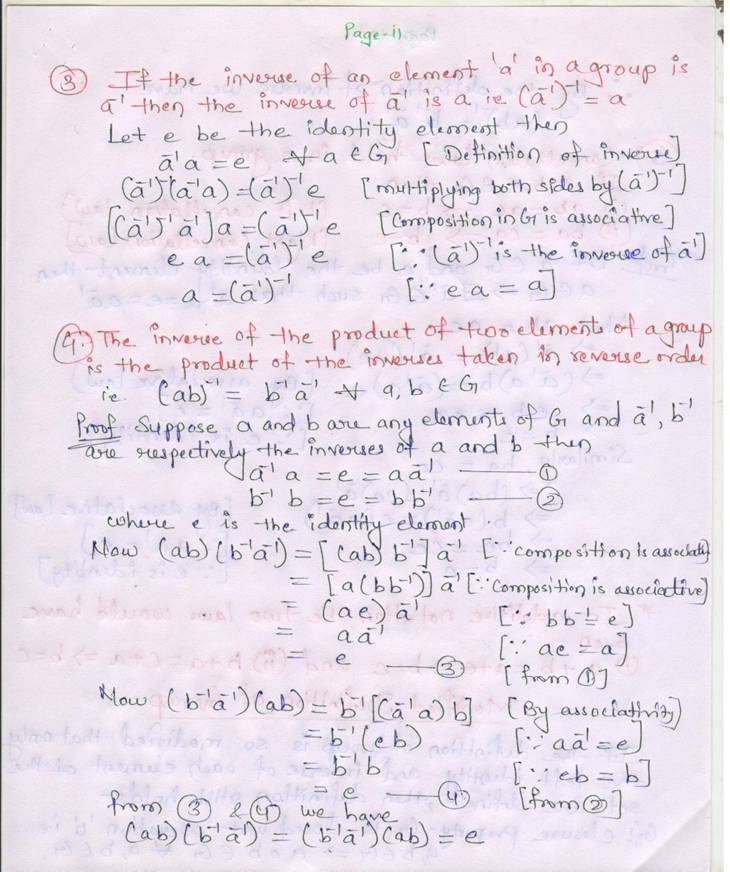 Page-11
③ If the inverse of an element 'a' in a group is
a⁻¹ then the inverse of a⁻¹ is a, i.e (a⁻¹)⁻¹ = a
Let e be the identity element then
a⁻¹a = e ∀ a ∈ G [Definition of inverse]
(a⁻¹)⁻¹(a⁻¹a) = (a⁻¹)⁻¹e [multiplying both sides by (a⁻¹)⁻¹]
[(a⁻¹)⁻¹a⁻¹]a = (a⁻¹)⁻¹e [Composition in G is associative]
e a = (a⁻¹)⁻¹e [∵ (a⁻¹)⁻¹ is the inverse of a⁻¹]
a = (a⁻¹)⁻¹ [∵ e a = a]
④. The inverse of the product of two elements of a group
is the product of the inverses taken in reverse order
i.e. (ab)⁻¹ = b⁻¹a⁻¹ ∀ a, b ∈ G
Proof Suppose a and b are any elements of G and a⁻¹, b⁻¹
are respectively the inverses of a and b then
a⁻¹ a = e = a a⁻¹ — ①
b⁻¹ b = e = b b⁻¹ — ②
where e is the identity element.
Now (ab)(b⁻¹a⁻¹) = [(ab) b⁻¹] a⁻¹ [∵ composition is associati
= [a(bb⁻¹)] a⁻¹ [∵ Composition is associative]
= (ae) a⁻¹ [∵ bb⁻¹ = e]
= a a⁻¹ [∵ ae = a]
= e — ③ [from ①]
Now (b⁻¹a⁻¹)(ab) = b⁻¹[(a⁻¹a) b] [By associativity)
= b⁻¹(eb) [∵ aa⁻¹ = e]
= b⁻¹b [∵ eb = b]
= e — ④ [from ②]
from ③ & ④ we have
(ab)(b⁻¹a⁻¹) = (b⁻¹a⁻¹)(ab) = e